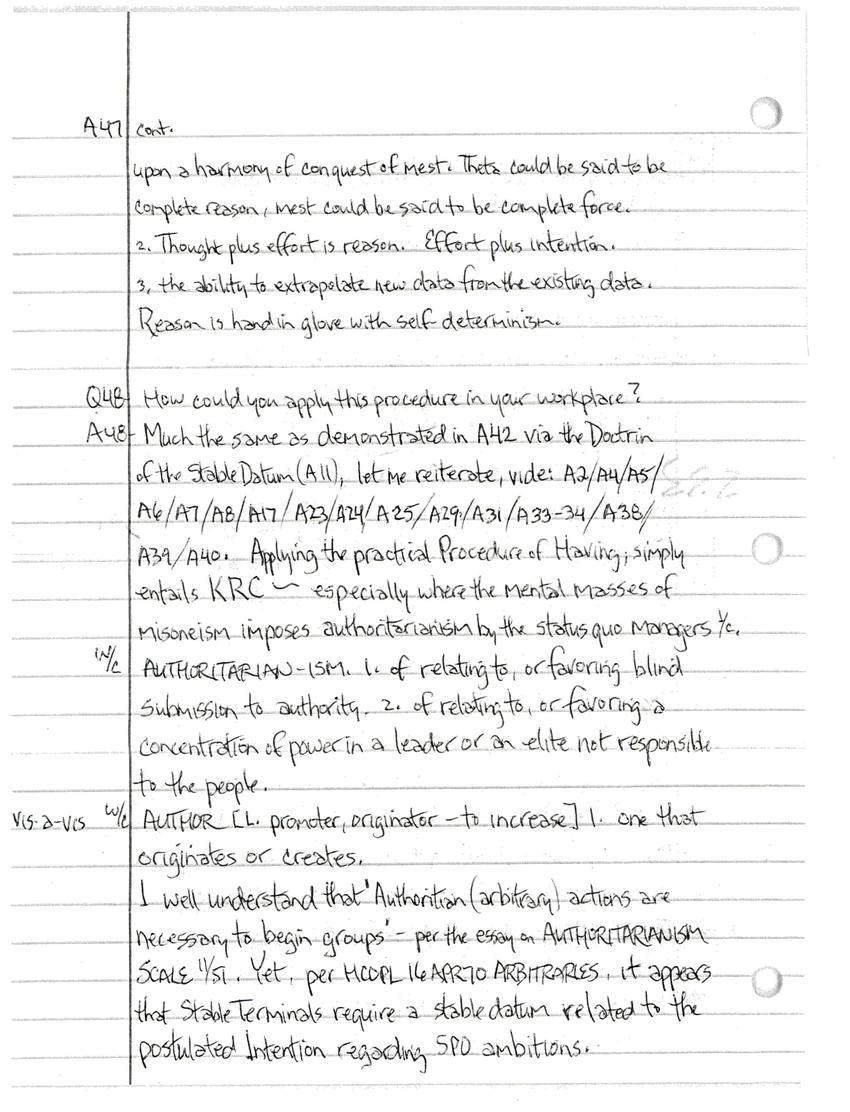 A47 cont.
upon a harmony of conquest of mest. Theta could be said to be
complete reason, mest could be said to be complete force.
2. Thought plus effort is reason. Effort plus intention.
3, the ability to extrapolate new data from the existing data.
Reason is hand in glove with self-determinism.
Q48 How could you apply this procedure in your workplace?
A48 Much the same as demonstrated in A42 via the Doctrin
of the Stable Datum (A11), let me reiterate, vide: A2/A4/A5/
A6/A7/A8/A17/A23/A24/A25/A29/A31/A33-34/A38/
A39/A40. Applying the practical Procedure of Having; simply
entails KRC — especially where the mental masses of
misoneism imposes authoritarianism by the status quo Managers i/c.
W/c AUTHORITARIAN-ISM. 1. of relating to, or favoring blind
submission to authority. 2. of relating to, or favoring a
concentration of power in a leader or an elite not responsible
to the people.
Vis-a-vis W/c AUTHOR [L. promoter, originator – to increase] 1. one that
originates or creates.
I well understand that 'Authoritian (arbitrary) actions are
necessary to begin groups' – per the essay on AUTHORITARIANISM
SCALE 11/51. Yet, per HCOPL 16 APR 70 ARBITRARIES, it appears
that Stable Terminals require a stable datum related to the
postulated Intention regarding SPO ambitions.